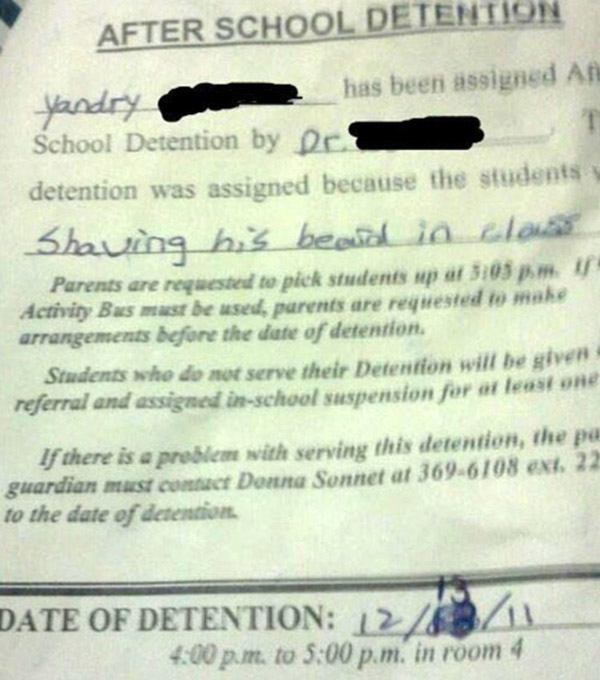 AFTER SCHOOL DETENTION
Yandry has been assigned Aft
School Detention by Dr. T
detention was assigned because the students w
Shaving his beard in class
Parents are requested to pick students up at 5:05 p.m. If
Activity Bus must be used, parents are requested to make
arrangements before the date of detention.
Students who do not serve their Detention will be given
referral and assigned in-school suspension for at least one
If there is a problem with serving this detention, the pa
guardian must contact Donna Sonnet at 369-6108 ext. 22
to the date of detention.
DATE OF DETENTION: 12/13/11
4:00 p.m. to 5:00 p.m. in room 4